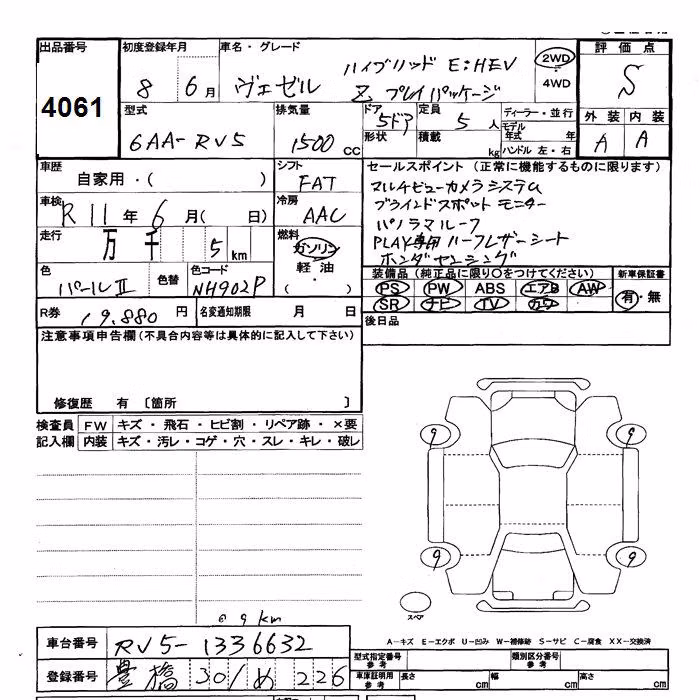 出品番号 初度登録年月 車名・グレード 評価点
4061 8 6月 ヴェゼル ハイブリッド E:HEV 2WD S
Z プレイパッケージ 4WD
型式 排気量 ドア 定員 ディーラー・並行 外装 内装
6AA-RV5 1500 CC 5ドア 5人 モデル年式 年 A A
形状 積載 kg ハンドル 左・右
車歴 シフト セールスポイント (正常に機能するものに限ります)
自家用・( ) FAT マルチビューカメラシステム
車検 冷房 ブラインドスポットモニター
R11年 6月( 日) AAC パノラマルーフ
走行 燃料 PLAY専用ハーフレザーシート
万 千 5km ガソリン ホンダセンシング
軽油・( )
色 色替 色コード 装備品 (純正品に限り○をつけてください) 新車保証書
パールII NH902P PS PW ABS エアB AW 有・無
SR ナビ TV カワ
R券 19.880円 名変通知期限 月 日 後日品
注意事項申告欄 (不具合内容等は具体的に記入して下さい)
修復歴 有 〔箇所 〕
検査員 FW キズ・飛石・ヒビ割・リペア跡・×要
記入欄 内装 キズ・汚レ・コゲ・穴・スレ・キレ・破レ
9 9
9 9
スペア
@ 9 km
A-キズ E-エクボ U-凹み W-補修跡 S-サビ C-腐食 XX-交換済
車台番号 RV5-1336632 型式指定番号 参考 類別区分番号 参考
登録番号 豊橋 301 め 226 車庫証明用 参考 長さ cm 幅 cm 高さ cm